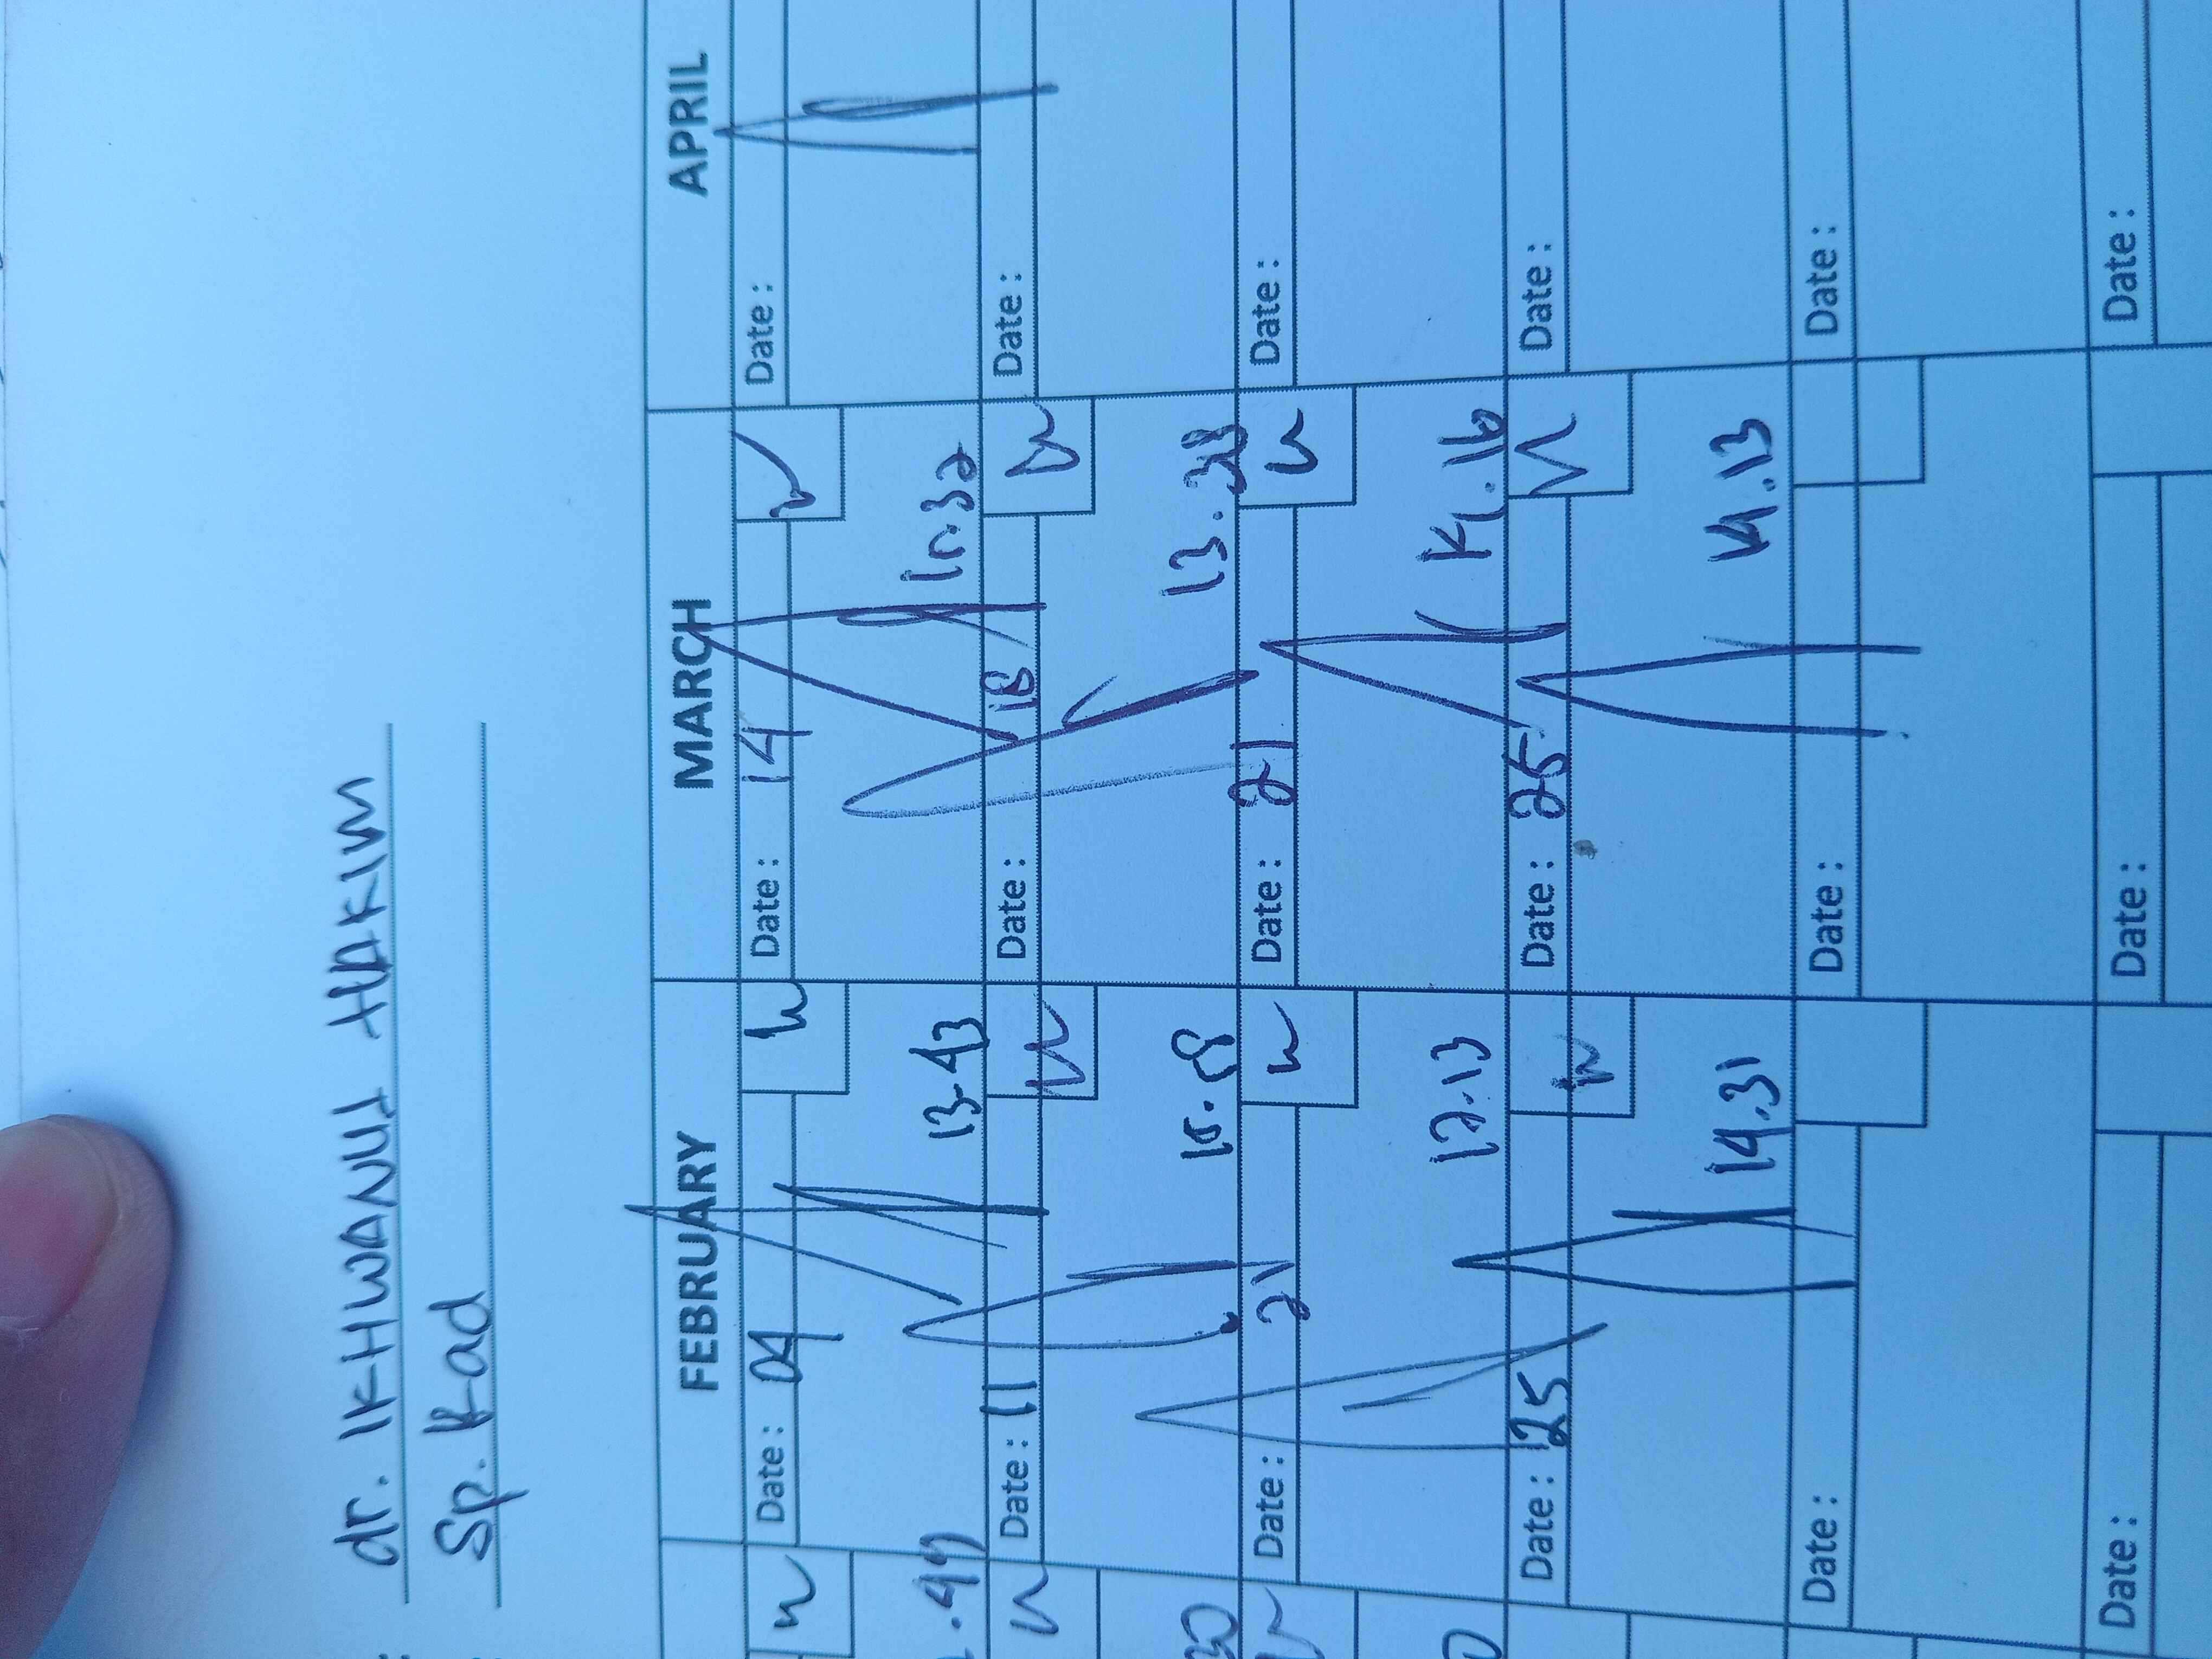 dr. IKHWANUL HAKIM
Sp. Rad
FEBRUARY MARCH APRIL
Date: 04 Date: 14 Date:
.49 13-43 15.32
Date: 11 Date: 18 Date:
30 13.38
Date: 21 Date: 21 Date:
12.13 14.16
Date: 25 Date: 25 Date:
14.31 14.13
Date: Date: Date:
Date: Date: Date: